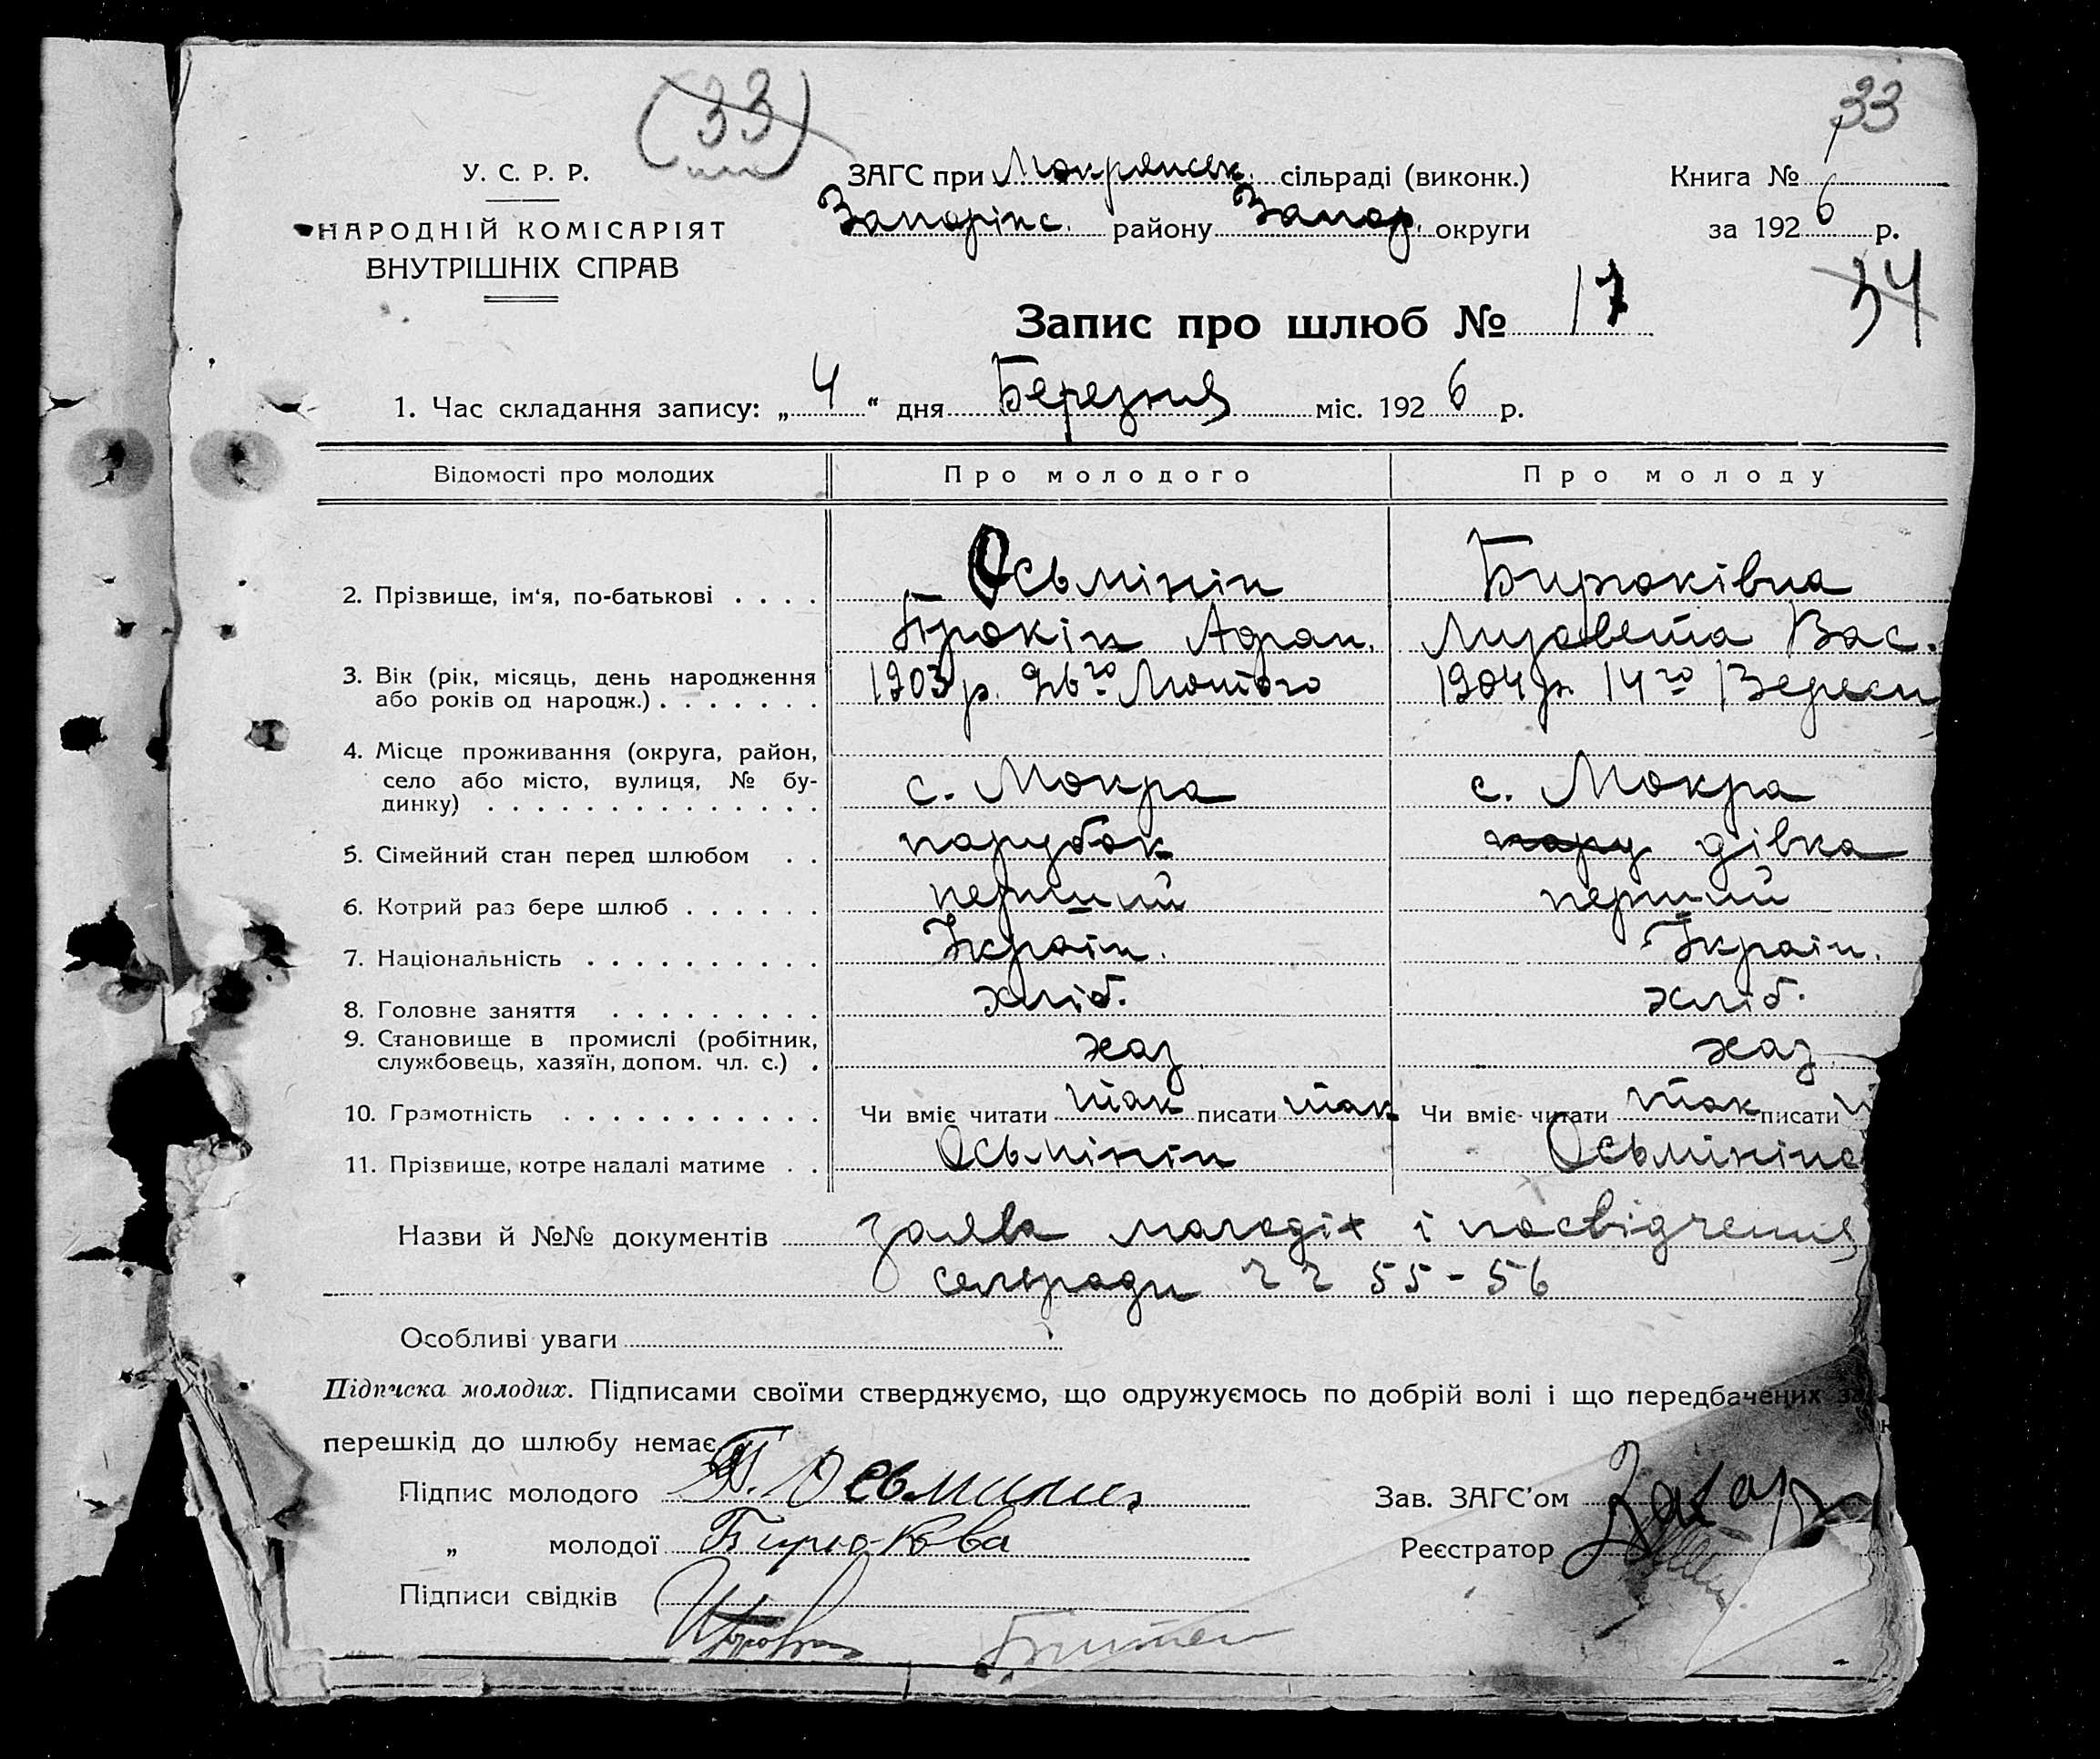 (33)
33
У. С. Р. Р.
НАРОДНІЙ КОМІСАРІЯТ
ВНУТРІШНІХ СПРАВ
ЗАГС при Мокрянськ. сільраді (виконк.)
Запоріпс. району Запор. округи
Книга №
за 1926 р.
34
Запис про шлюб № 17
1. Час складання запису: „ 4 “ дня Березня міс. 1926 р.
Відомості про молодих Про молодого Про молоду
2. Прізвище, ім‘я, по-батькові . . . . Осьмінін Бирюківна
Прокіп Адган. Лизавета Вас.
3. Вік (рік, місяць, день народження
або років од народж.) . . . . . . . 1903 р. 26го Лютого 1904 р. 14го Вересн
4. Місце проживання (округа, район,
село або місто, вулиця, № бу-
динку) . . . . . . . . . . . . . . с. Мокра с. Мокра
5. Сімейний стан перед шлюбом . . парубок пару дівка
6. Котрий раз бере шлюб . . . . . . перший перший
7. Національність . . . . . . . . . . Україн. Україн.
8. Головне заняття . . . . . . . . . хліб. хліб.
9. Становище в промислі (робітник,
службовець, хазяїн, допом. чл. с.) . хаз хаз.
10. Грамотність . . . . . . . . . . . Чи вміє читати так писати так Чи вміє читати так писати
11. Прізвище, котре надалі матиме . . Осьмінін Осьмініна
Назви й №№ документів заява молодіх і посвідчення
сельради ч ч 55-56
Особливі уваги
Підписка молодих. Підписами своїми стверджуємо, що одружуємось по добрій волі і що передбачених за
перешкід до шлюбу немає.
Підпис молодого П. Осьминин
Зав. ЗАГС’ом Захар
„ молодої Бирюкова
Реєстратор
Підписи свідків